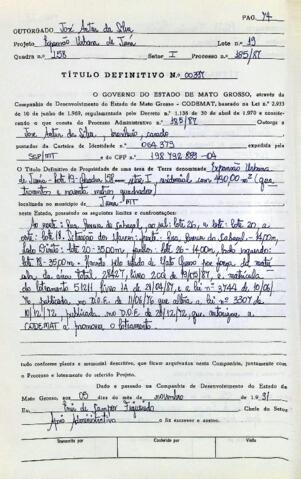 PAG. 74
OUTORGADO José Antas da Silva
Projeto Expansão Urbana de Juína Lote n.º 19
Quadra n.º 158 Setor I Processo n.º 185/87
TÍTULO DEFINITIVO N.º 00387
O GOVERNO DO ESTADO DE MATO GROSSO, através da
Companhia de Desenvolvimento do Estado de Mato Grosso - CODEMAT, baseado na Lei n.º 2.933
de 10 de junho de 1.969, regulamentada pelo Decreto n.º 1.138 de 30 de abril de 1.970 e consideran-
do o que consta do Processo Administrativo n.º 185/87 Outorga a
José Antas da Silva, brasileiro, casado
portador da Carteira de Identidade n.º 064 373 expedida pela
SSP/MT e do CPF n.º 198 792 889-04
O Título Definitivo de Propriedade de uma área de Terra denominada Expansão Urbana
de Juína, lote 19, Quadra 158 setor I, residencial com 490,00 m² (qua-
trocentos e noventa metros quadrados)
localizada no município de Juína MT
neste Estado, possuindo os seguintes limites e confrontações:
ao norte: Rua
lote 20, a
lote: 18.
14,00m,
lado direito: lote 20-35,00m, fundo: lote 26-14,00m, lado esquerdo:
lote 18-35,00m.
da área total 28427, livro 200 de 19/05/87, e matrícula
do loteamento 51211 livro 1A de 21/04/87, e lei n.º 3744 de 10/06/
76 publicada, no D.O.E. de 11/06/76 que altera a lei n.º 3307 de
18/12/72, publicada, no D.O.E de 21/12/72, que autoriza a
CODEMAT a promover o loteamento.
tudo conforme planta e memorial descritivo, que ficam arquivados nesta Companhia, juntamente com
o Processo e loteamento do referido Projeto.
Dado e passado na Companhia de Desenvolvimento do Estado de
Mato Grosso, aos 05 dias do mês de novembro de 1.9 91
Eu, de Campos Figueiredo Chefe do Setor
Apoio Administrativo o fiz escrever e assino.
Transcrito por Conferido por Visto